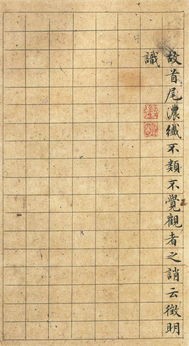 故首尾濃纖不類不覺觀者之誚云徵明
識